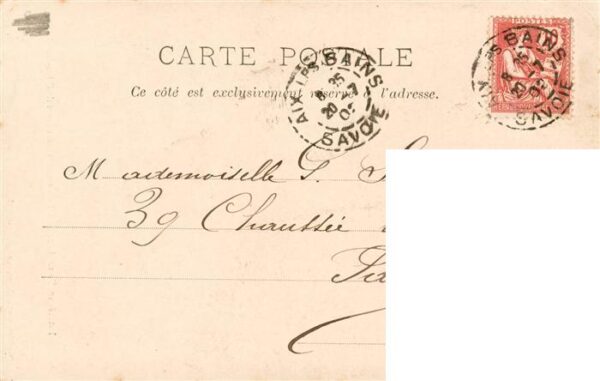 CARTE POSTALE
Ce côté est exclusivement réservé à l'adresse.
AIX LES BAINS
8 35
20 -7
05
SAVOIE
POSTES
BAINS
SAVOIE
Mademoiselle S.
39 Chaussée